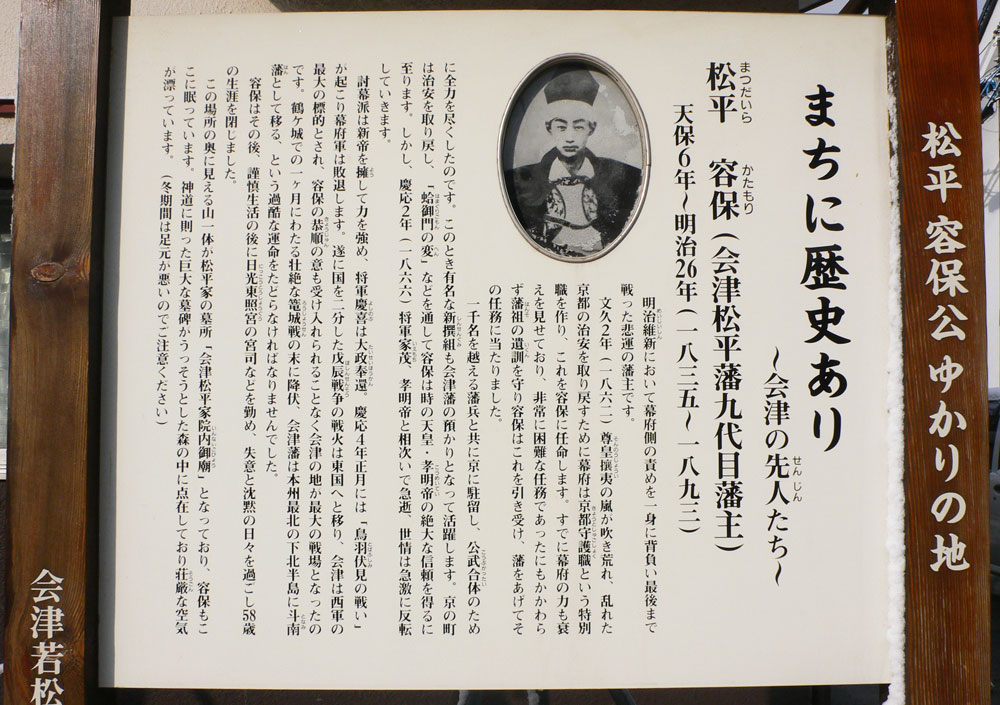 松平容保公ゆかりの地
まちに歴史あり
～会津の先人たち～
せんじん
松平　容保（会津松平藩九代目藩主）
まつだいら　かたもり
天保6年～明治26年（一八三五～一八九三）
明治維新において幕府側の責めを一身に背負い最後まで
戦った悲運の藩主です。
文久2年（一八六二）尊皇攘夷の嵐が吹き荒れ、乱れた
京都の治安を取り戻すために幕府は京都守護職という特別
職を作り、これを容保に任命します。すでに幕府の力も衰
えを見せており、非常に困難な任務であったにもかかわら
ず藩祖の遺訓を守り容保はこれを引き受け、藩をあげてそ
の任務に当たりました。
一千名を越える藩兵と共に京に駐留し、公武合体のため
に全力を尽くしたのです。このとき有名な新撰組も会津藩の預かりとなって活躍します。京の町
は治安を取り戻し、「蛤御門の変」などを通して容保は時の天皇・孝明帝の絶大な信頼を得るに
至ります。しかし、慶応2年（一八六六）将軍家茂、孝明帝と相次いで急逝、世情は急激に反転
していきます。
討幕派は新帝を擁して力を強め、将軍慶喜は大政奉還。慶応4年正月には「鳥羽伏見の戦い」
が起こり幕府軍は敗退します。遂に国を二分した戊辰戦争の戦火は東国へと移り、会津は西軍の
最大の標的とされ、容保の恭順の意も受け入れられることなく会津の地が最大の戦場となったの
です。鶴ケ城での一ヶ月にわたる壮絶な篭城戦の末に降伏、会津藩は本州最北の下北半島に斗南
藩として移る、という過酷な運命をたどらなければなりませんでした。
容保はその後、謹慎生活の後に日光東照宮の宮司などを勤め、失意と沈黙の日々を過ごし58歳
の生涯を閉じました。
この場所の奥に見える山一体が松平家の墓所「会津松平家院内御廟」となっており、容保もこ
こに眠っています。神道に則った巨大な墓碑がうっそうとした森の中に点在しており荘厳な空気
が漂っています。（冬期間は足元が悪いのでご注意ください）
会津若松